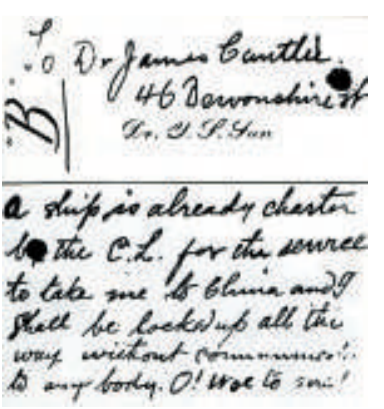 To Dr James Cantlie.
46 Devonshire St
B.
Dr. Y. S. Sun
A ship is already charter
by the C.L. for the service
to take me to China and I
shall be locked up all the
way without communicat:
to any body. O! Woe to me!